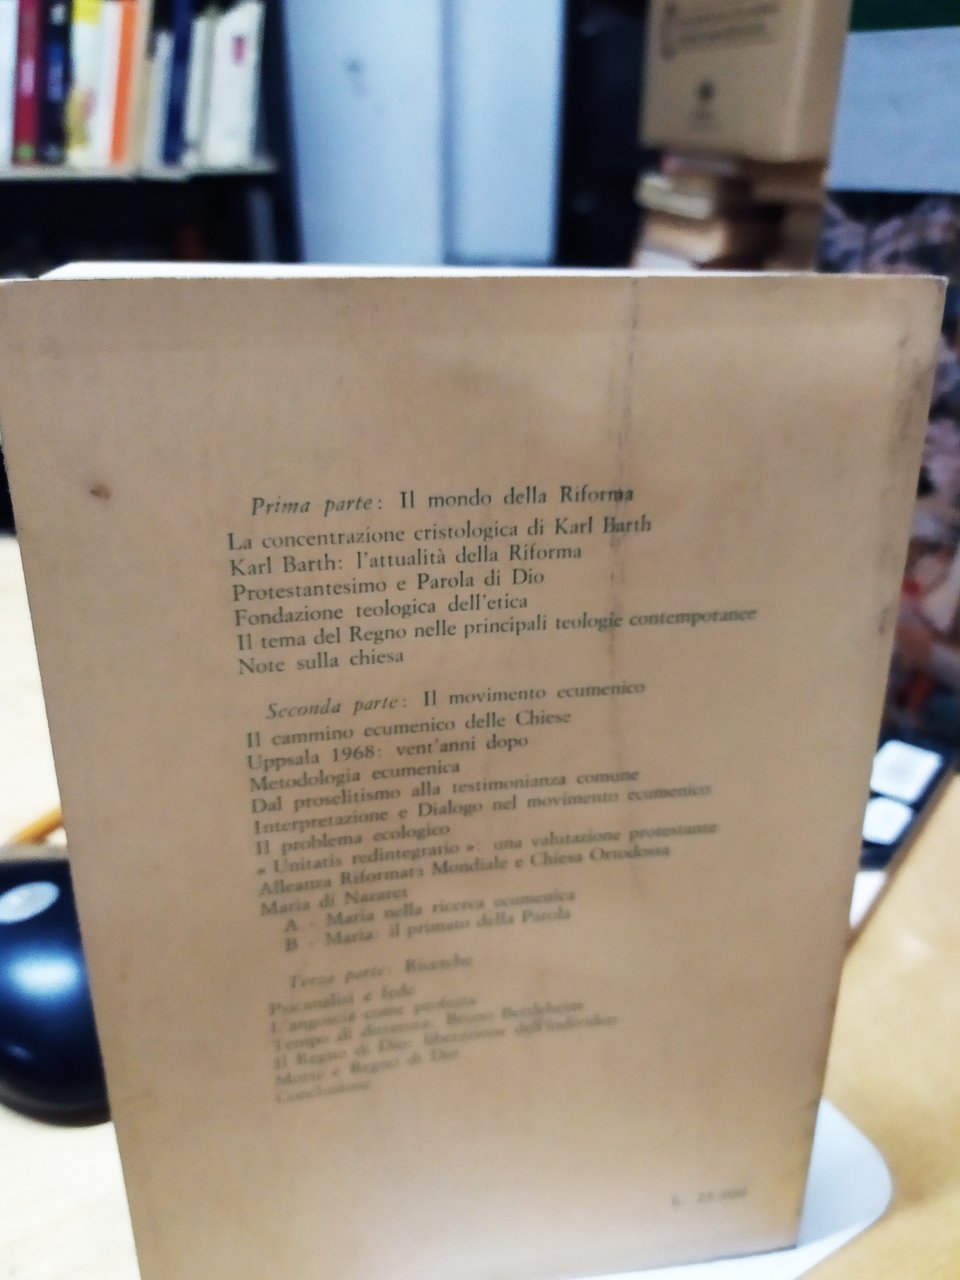 Prima parte: Il mondo della Riforma
La concentrazione cristologica di Karl Barth
Karl Barth: l'attualità della Riforma
Protestantesimo e Parola di Dio
Fondazione teologica dell'etica
Il tema del Regno nelle principali teologie contemporanee
Note sulla chiesa
Seconda parte: Il movimento ecumenico
Il cammino ecumenico delle Chiese
Uppsala 1968: vent'anni dopo
Metodologia ecumenica
Dal proselitismo alla testimonianza comune
Interpretazione e Dialogo nel movimento ecumenico
Il problema ecologico
« Unitatis redintegratio »: una valutazione protestante
Alleanza Riformata Mondiale e Chiesa Ortodossa
Maria di Nazaret
A - Maria nella ricerca ecumenica
B - Maria: il primato della Parola
Terza parte: Ricerche
Psicanalisi e fede
L'angoscia come
Tempo di Bruno Bettelheim
Il Regno di Dio: liberazione dell'individuo
Morte e Regno di Dio
Conclusione
L.